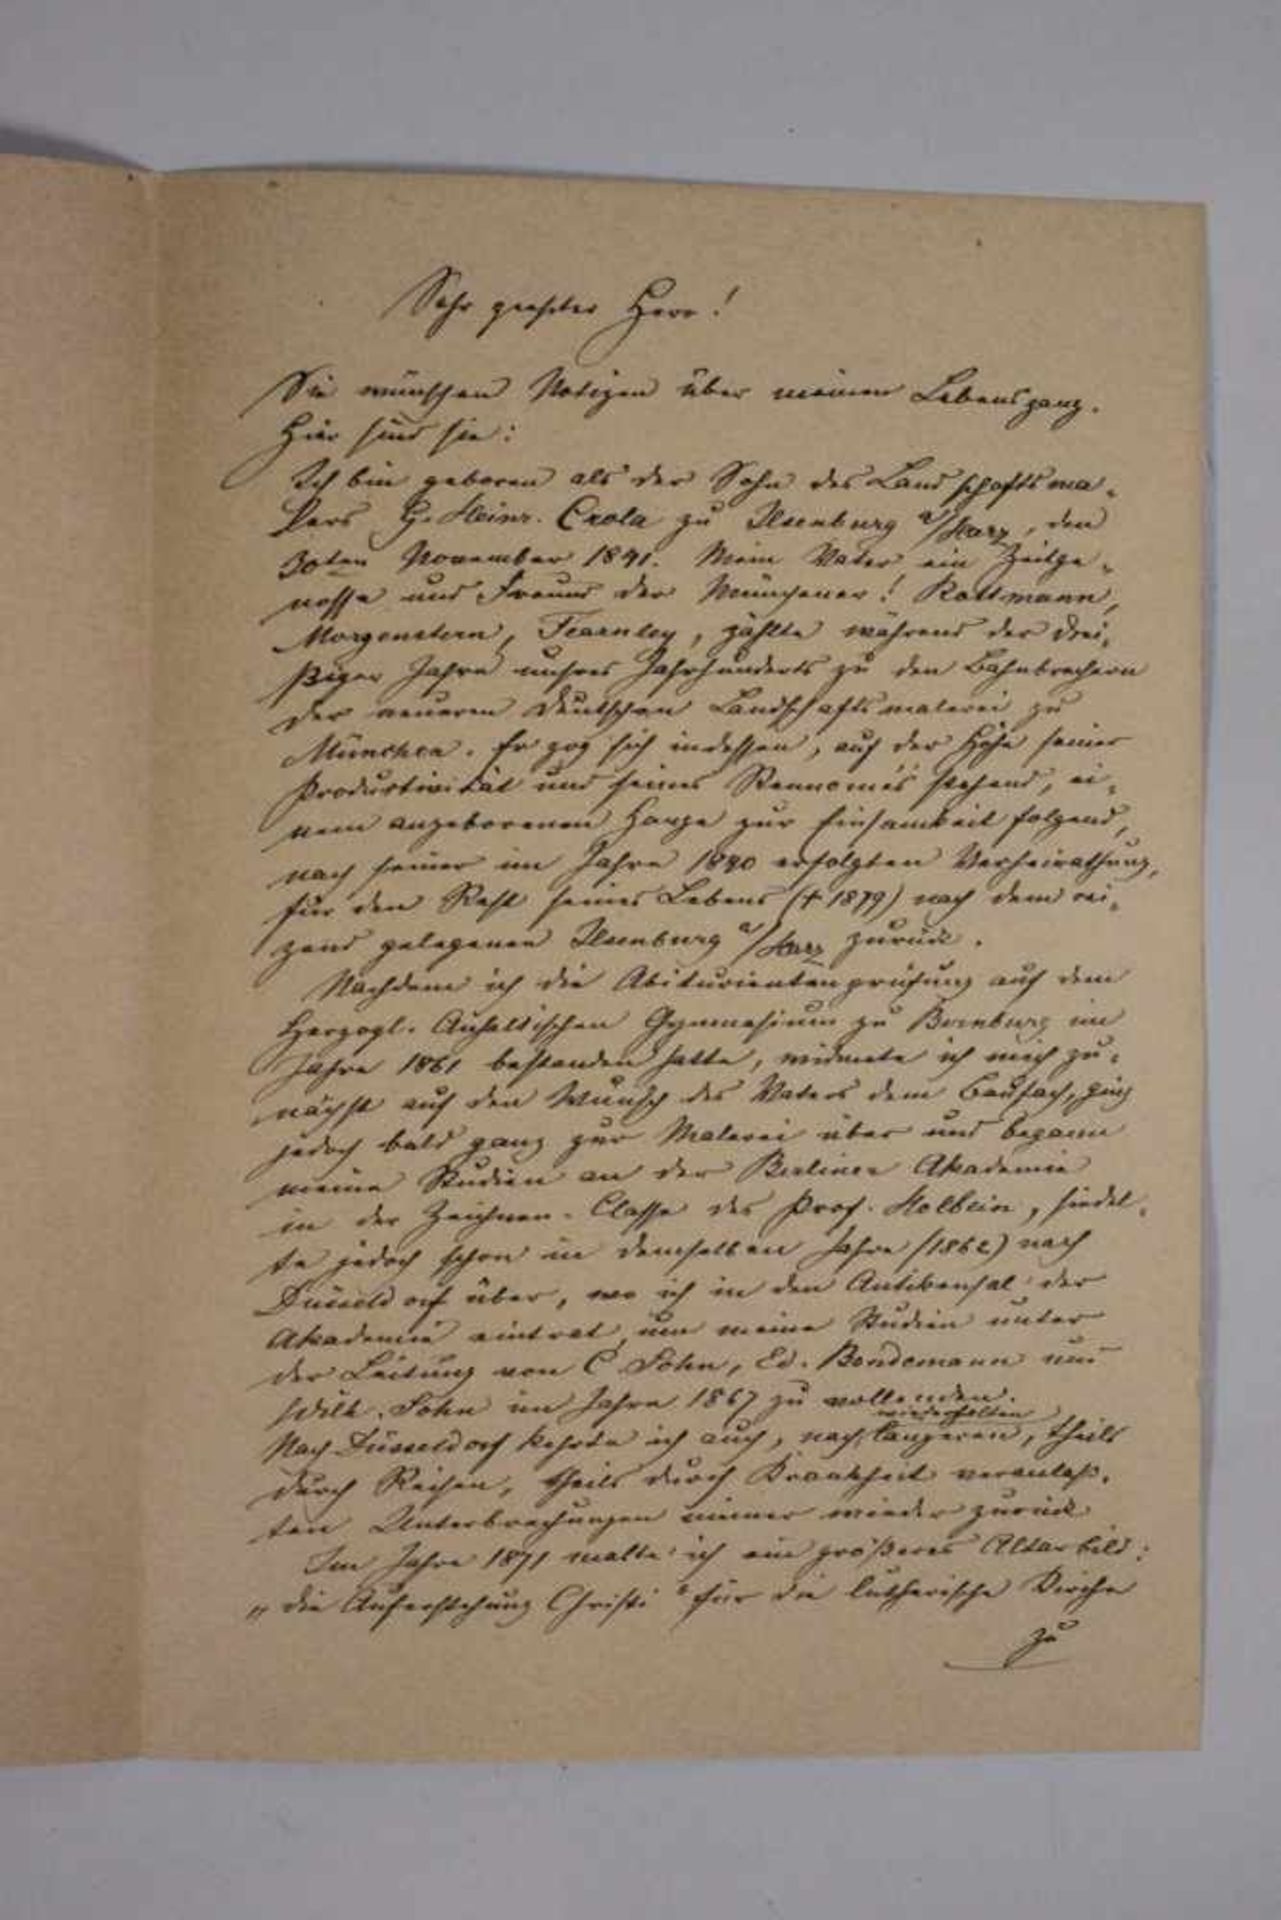 Sehr geehrter Herr!
Sie wünschen Notizen über meinen Lebensgang.
Hier sind sie:
Ich bin geboren als der Sohn des Landschaftsma-
lers G. Heinr. Crola zu Ilsenburg a/Harz, den
30ten November 1841. Mein Vater ein Zeitge-
nosse und Freund der Münchener: Rottmann,
Morgenstern, Fearnley, zählte während der drei-
ßiger Jahre unsres Jahrhunderts zu den Bahnbrechern
der neueren deutschen Landschaftsmalerei zu
München. Er zog sich indessen, auf der Höhe seiner
Productivität und seines Rennomés stehend, ei-
nem angeborenen Hange zur Einsamkeit folgend,
nach seiner im Jahre 1840 erfolgten Verheirathung,
für den Rest seines Lebens († 1879) nach dem rei-
zend gelegenen Ilsenburg a/Harz zurück.
Nachdem ich die Abiturientenprüfung auf dem
Herzogl. Anhaltischen Gymnasium zu Bernburg im
Jahre 1861 bestanden hatte, widmete ich mich zu-
nächst auf den Wunsch des Vaters dem Baufach, ging
jedoch bald ganz zur Malerei über und begann
meine Studien an der Berliner Akademie
in der Zeichnen-Classe des Prof. Holbein, siedel-
te jedoch schon in demselben Jahre (1862) nach
Düsseldorf über, wo ich in den Antikensal der
Akademie eintrat, um meine Studien unter
der Leitung von C. Sohn, Ed. Bendemann und
Wilh. Sohn im Jahre 1867 zu vollenden.
Nach Düsseldorf kehrte ich auch, nach wiederholten längeren, theils
durch Reisen, theils durch Krankheit veranlaß-
ten Unterbrechungen immer wieder zurück
Im Jahre 1871 malte ich ein größeres Altarbild:
„die Auferstehung Christi" für die lutherische Kirche
zu